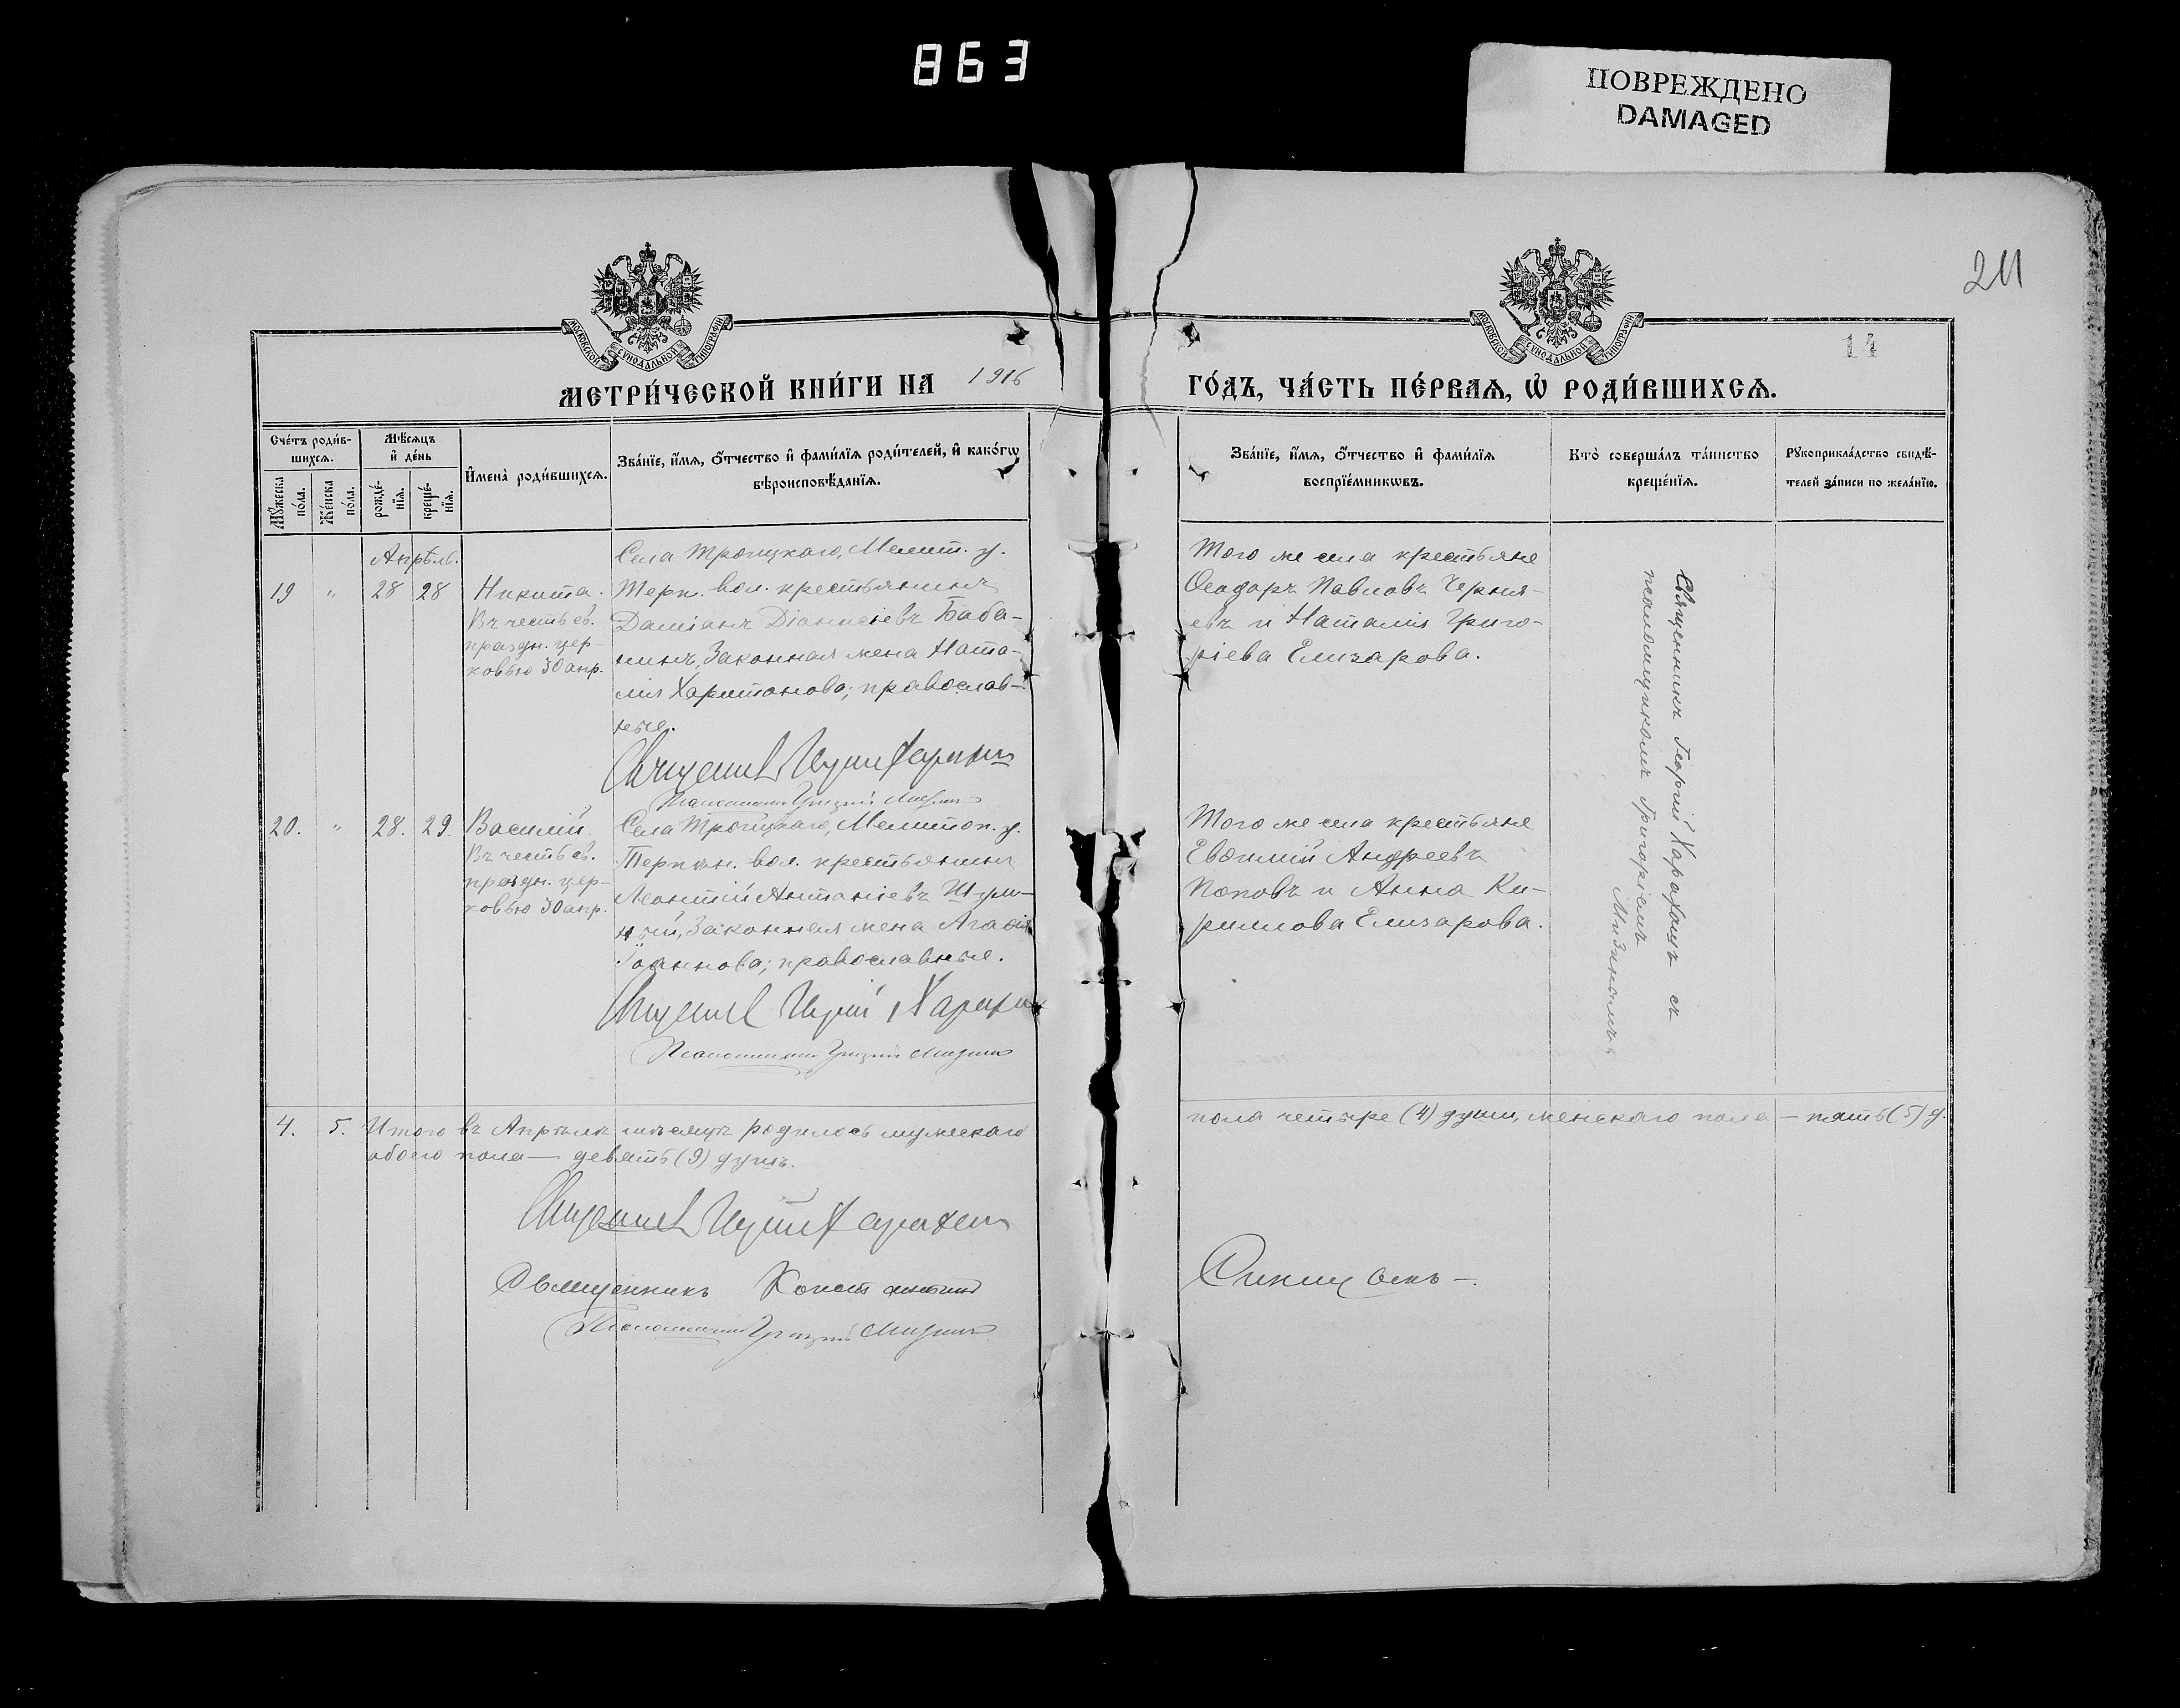 863
ПОВРЕЖДЕНО
DAMAGED
211
14
МОСКОВСКОЙ СУНОДАЛЬНОЙ ТИПОГРАФІИ
МОСКОВСКОЙ СУНОДАЛЬНОЙ ТИПОГРАФІИ
МЕТРИ́ЧЕСКОЙ КНИ́ГИ НА 1916
ГО́ДЪ, ЧА́СТЬ ПЕ́РВАѦ, Ѡ҆ РОДИ́ВШИХСѦ.
Сче́тъ роди́в-
шихсѧ.
Мꙋ́жеска по́ла.
Же́нска по́ла.
Мѣ́сѧцъ
и҆ де́нь
рожде́-
нїѧ.
креще́-
нїѧ.
И҆мена̀ роди́вшихсѧ.
Зва́нїе, и҆́мѧ, ѻ҆́тчество и҆ фами́лїѧ роди́телей, и҆ како́гѡ
вѣроисповѣ́данїѧ.
Зва́нїе, и҆́мѧ, ѻ҆́тчество и҆ фами́лїѧ
воспрїе́мникѡвъ.
Кто̀ соверша́лъ та́инство
креще́нїѧ.
Рꙋкоприкла́дство свидѣ́-
телей за́писи по жела́нїю.
Апрѣль.
19 " 28 28
Никита.
Въ честь св.
праздн. цер-
ковью 30 апр.
Села Троицкаго, Мелит. у.
Терп. вол. крестьянинъ
Даміанъ Діонисіевъ Баба-
нинъ, Законная жена Ната-
лія Харитонова; православ-
ные.
Псаломщикъ Григорій Мизинъ
Того же села крестьяне
Ѳеодоръ Павловъ Черня-
евъ и Наталія Григо-
ріева Елизарова.
Священникъ Георгій Карахащъ съ
псаломщикомъ Григоріемъ Мизинымъ.
20. " 28. 29.
Василій.
Въ честь св.
праздн. цер-
ковью 30 апр.
Села Троицкаго, Мелитоп. у.
Терпѣн. вол. крестьянинъ
Леонтій Антоніевъ
Законная жена Агаѳія
Іоаннова; православные.
Псаломщикъ Григорій Мизинъ
Того же села крестьяне
Евѳимій Андреевъ
Поповъ и Анна Ки-
риллова Елизарова.
4. 5. Итого въ Апрѣлѣ мѣсяцѣ родилось мужескаго
пола четыре (4) души, женскаго пола — пять (5) д.
обоего пола — девять (9) душъ.
Священникъ Константинъ
Псаломщикъ Григорій Мизинъ